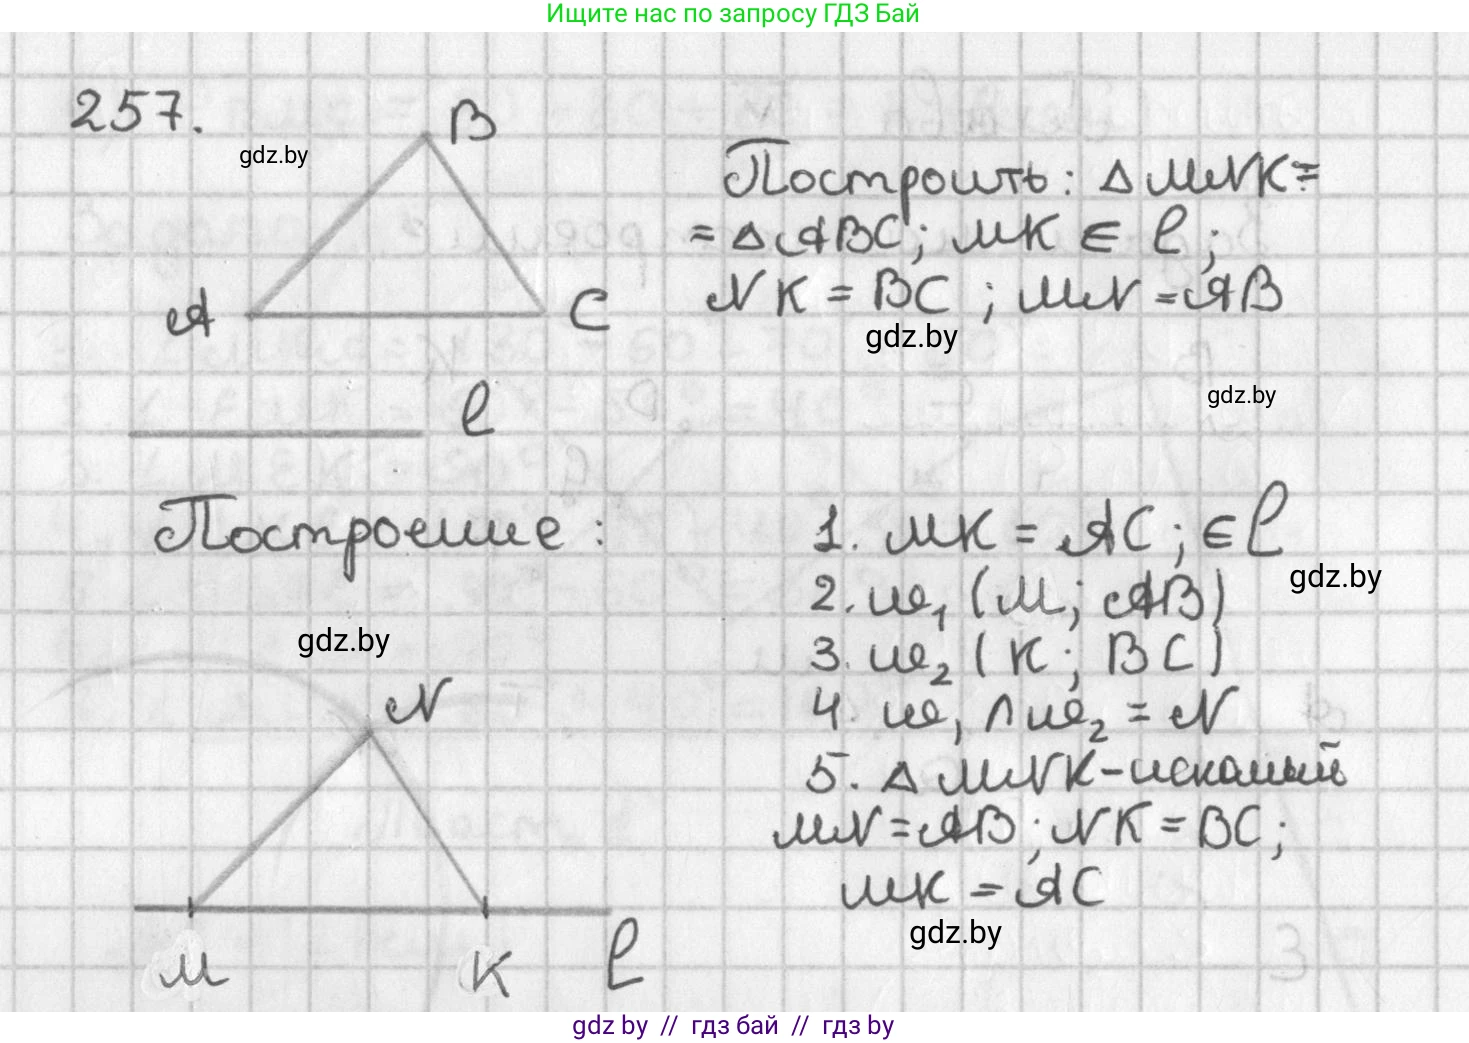 Ищите нас по запросу ГДЗ Бай
257.
B
gdz.by
A
C
Построить: △ MNK =
= △ ABC; MK ∈ l;
NK = BC ; MN = AB
gdz.by
gdz.by
l
Построение :
1. MK = AC; ∈ l
gdz.by
2. ω₁ (M; AB)
3. ω₂ (K; BC)
4. ω₁ ∩ ω₂ = N
5. △ MNK - искомый
MN = AB; NK = BC;
MK = AC
gdz.by
gdz.by
N
M
K
l
gdz by // гдз бай // гдз by